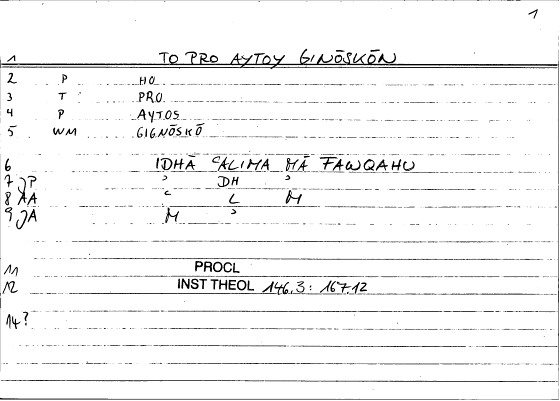 1
1 TO PRO AYTOY GINŌSKŌN
2 P HO
3 T PRO
4 P AYTOS
5 WM GIGNŌSKŌ
6 IDHĀ ʿALIMA MĀ FAWQAHU
7 P ʾ DH ʾ
8 AA ʿ L M
9 A M ʾ
11 PROCL
12 INST THEOL 146.3: 167.12
14?